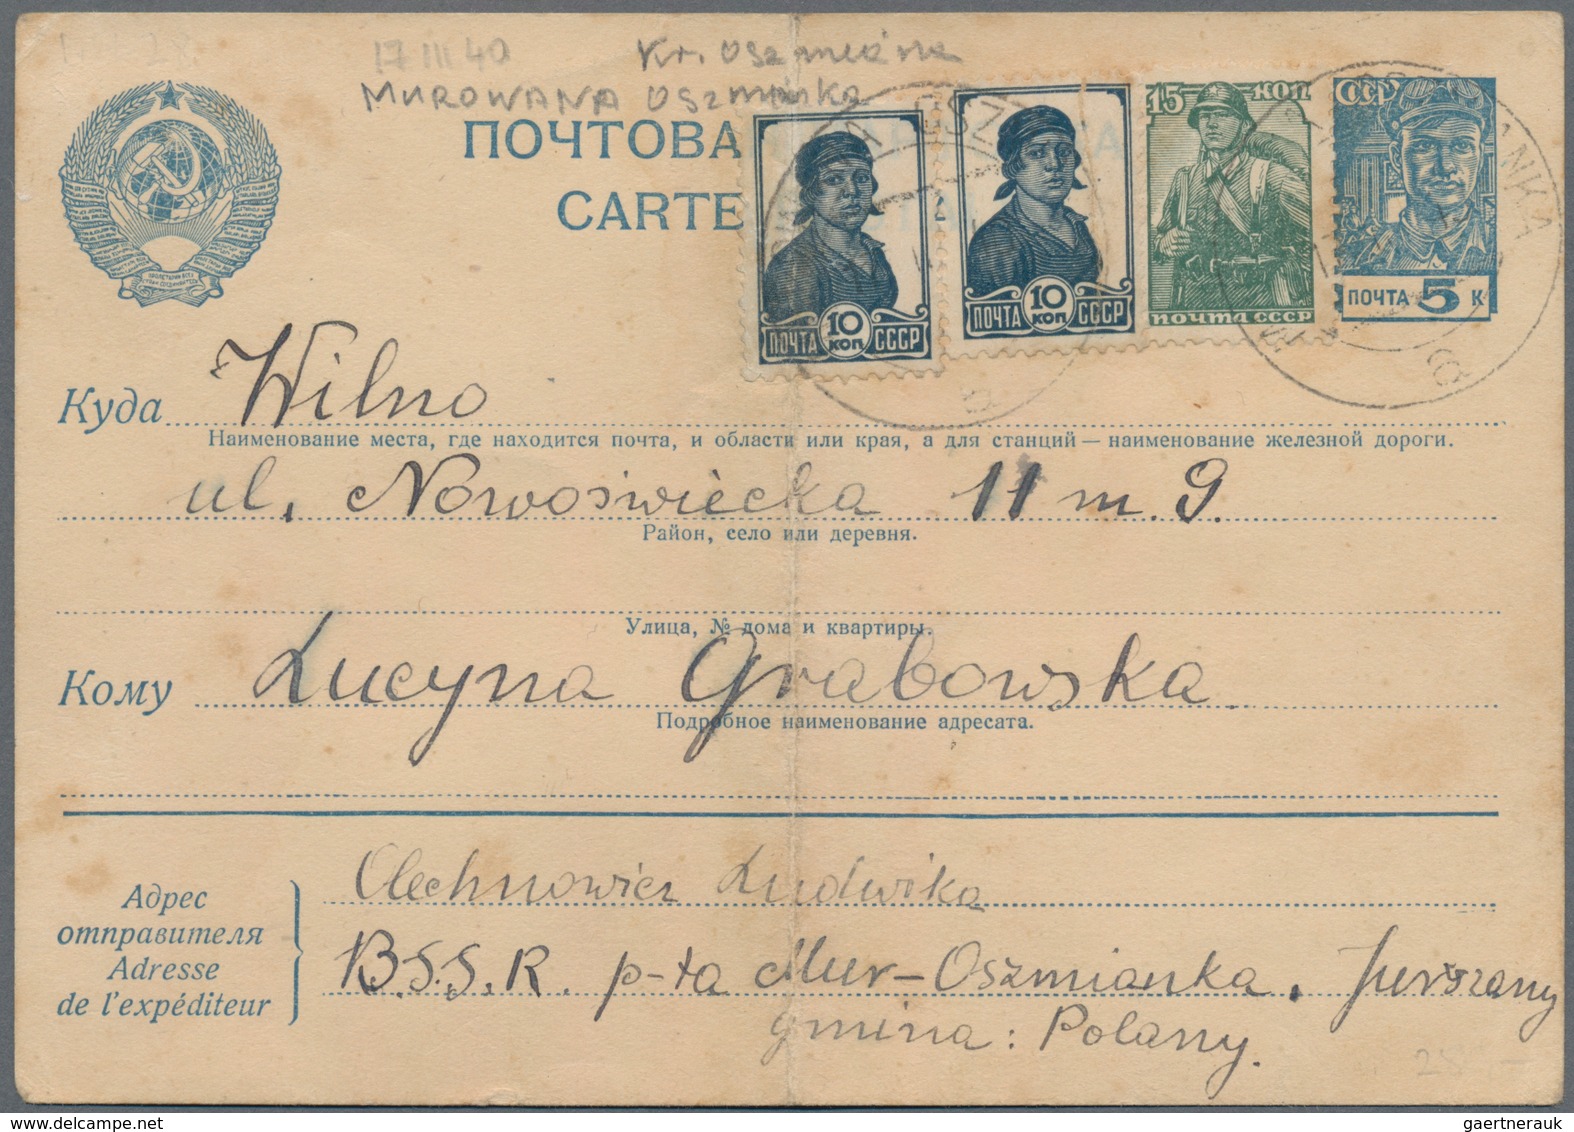 17 III 40 Kr. Oszmiana
MUROWANA Oszmianka
ПОЧТОВА
CARTE
ПОЧТА 10 КОП СССР
ПОЧТА 10 КОП СССР
15 КОП
ПОЧТА СССР
СССР
ПОЧТА 5 К
Куда Wilno
Наименование места, где находится почта, и области или края, а для станций — наименование железной дороги.
ul. Nowoświecka 11 m. 9.
Район, село или деревня.
Улица, № дома и квартиры.
Кому Lucyna Grabowska.
Подробное наименование адресата.
Адрес
отправителя
Adresse
de l'expéditeur
Olechnowicz Ludwika
B.S.S.R. p-ta Mur-Oszmianka.
gmina: Polany.
gaertnerauk